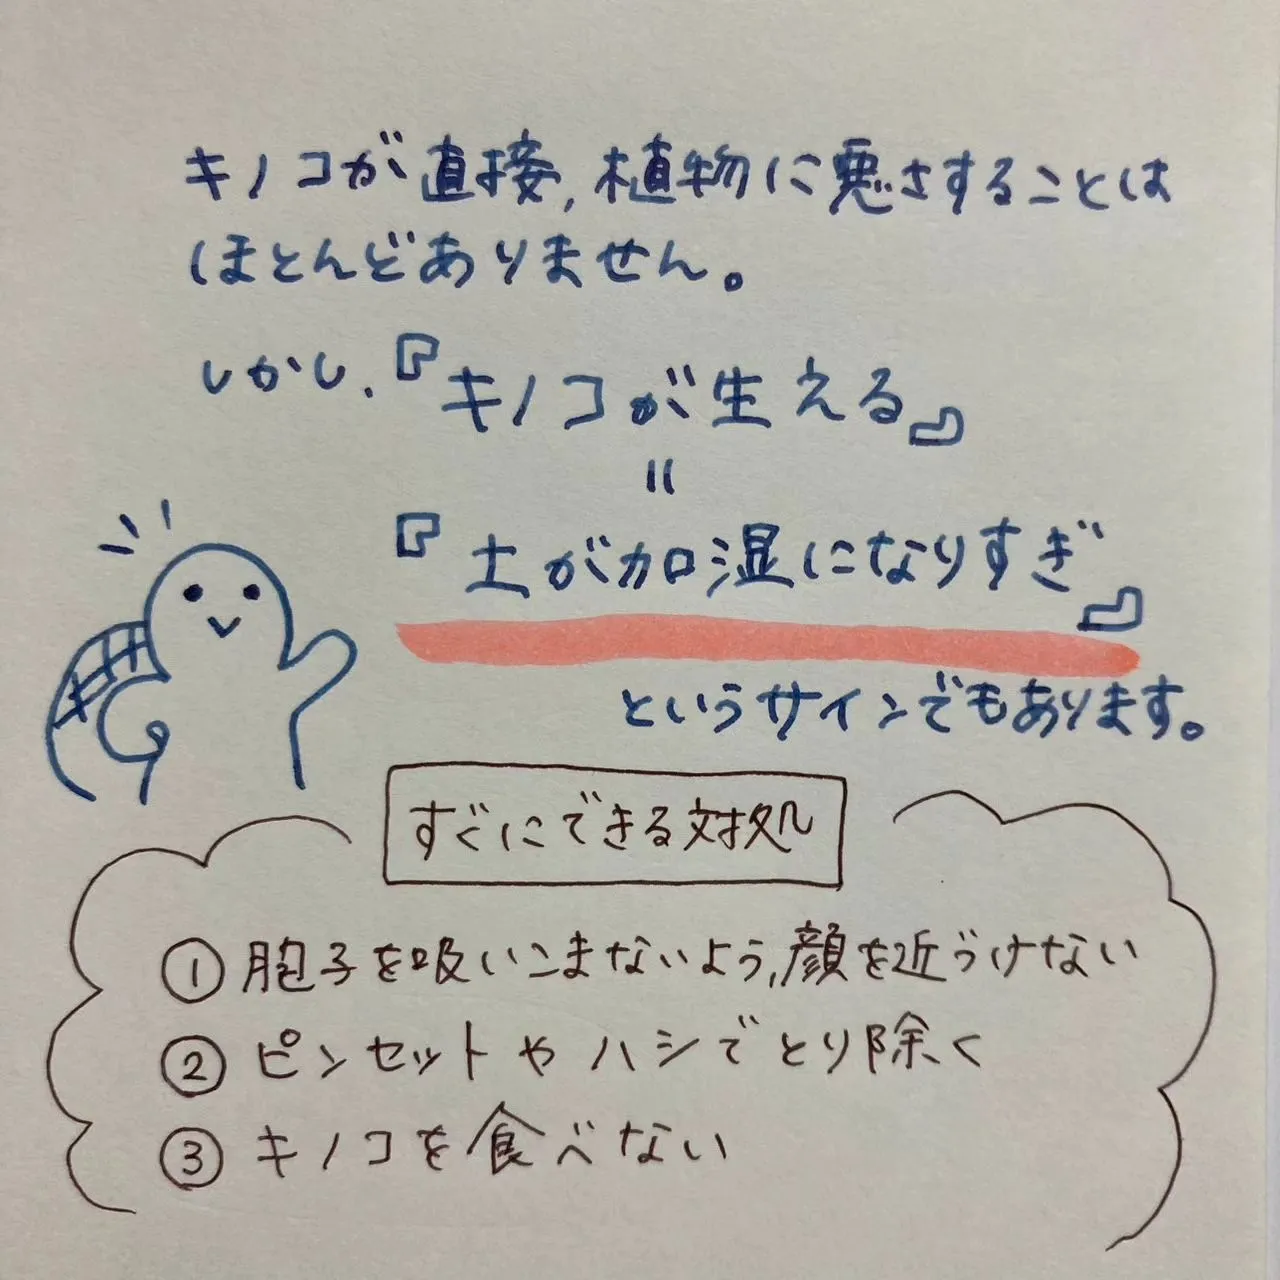 キノコが直接,植物に悪さすることは
ほとんどありません。
しかし、『キノコが生える』
=
『土が加湿になりすぎ』
というサインでもあります。
すぐにできる対処
① 胞子を吸いこまないよう,顔を近づけない
② ピンセットやハシでとり除く
③ キノコを食べない